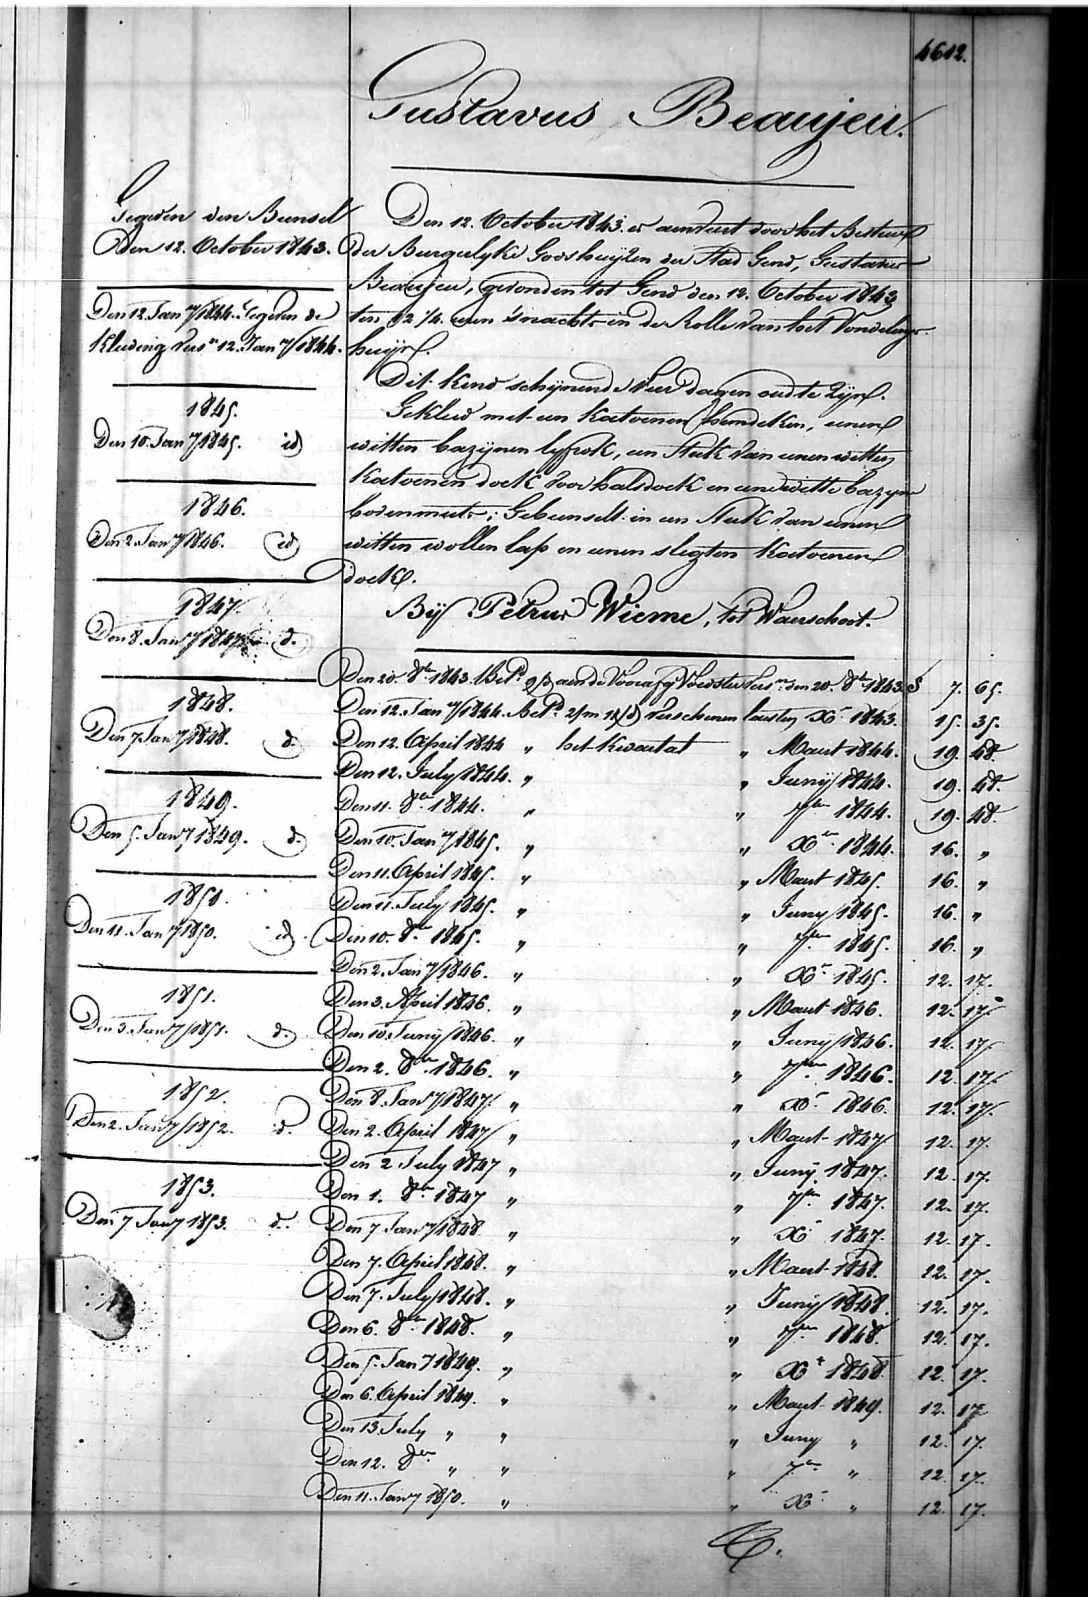 4612.
Gustavus Beaujeu.
Gegeven den Bunsel
Den 12. October 1843.
Den 12. Jany 1844. Gegeven de
Kleeding vers. 12. Jany 1844.
1845.
Den 10. Jany 1845. id
1846.
Den 2. Jany 1846. id
1847.
Den 8. Jany 1847. d.
1848.
Den 7. Jany 1848. d.
1849.
Den 5. Jany 1849. d.
1850.
Den 11. Jany 1850. id
1851.
Den 3. Jany 1851. d.
1852.
Den 2. Jany 1852. d.
1853.
Den 7 Jany 1853. d.
Den 12. October 1843. is aenveert door het Bestier
der Burgerlyke Godshuyzen der Stad Gend, Gustavus
Beaujeu, gevonden tot Gend den 12. October 1843
ten 12 1/4 uren 's nachts in de Rolle van het Vondelinge
huijs.
Dit kind schijnende vier dagen oud te zijn.
Gekleed met een katoenen hemdeken, eenen
witten bazynen lyfrok, een stuk van eenen witten
katoenen doek voor halsdoek en eene witte bazyne
bovenmuts; Gebunselt in een stuk van eenen
witten wollen lap en eenen slegten katoenen
doek.
Bij Petrus Wieme, tot Waerschoot.
Den 20. 8br 1843. Betd aen de Voorafg Voedster vers. den 20. 8br 1843. § 7. 65.
Den 12. Jany 1844. Betd 2/m verschenen laesten Xr 1843. 15. 35.
Den 12. April 1844 " het kwartal " Maert 1844. 19. 48.
Den 12. July 1844. " " Junij 1844. 19. 48.
Den 11. 8br 1844. " " 7ber 1844. 19. 48.
Den 10. Jany 1845. " " Xr 1844. 16. "
Den 11. April 1845. " " Maert 1845. 16. "
Den 11. July 1845. " " Juny 1845. 16. "
Den 10. 8br 1845. " " 7ber 1845. 16. "
Den 2. Jany 1846. " " Xr 1845. 12. 17.
Den 3. April 1846. " " Maert 1846. 12. 17.
Den 10. Junij 1846. " " Junij 1846. 12. 17.
Den 2. 8br 1846. " " 7ber 1846. 12. 17.
Den 8. Jany 1847. " " Xr 1846. 12. 17.
Den 2. April 1847 " " Maert 1847 12. 17.
Den 2 July 1847 " " Junij 1847. 12. 17.
Den 1. 8br 1847 " " 7ber 1847. 12. 17.
Den 7 Jany 1848 " " Xr 1847. 12. 17.
Den 7. April 1848. " " Maert 1848. 12. 17.
Den 7. July 1848. " " Junij 1848. 12. 17.
Den 6. 8br 1848. " " 7ber 1848. 12. 17.
Den 5. Jany 1849. " " Xr 1848. 12. 17.
Den 6. April 1849. " " Maert 1849. 12. 17.
Den 13 July " " " Juny " 12. 17.
Den 12. 8br " " " 7ber " 12. 17.
Den 11. Jany 1850. " " Xr " 12. 17.